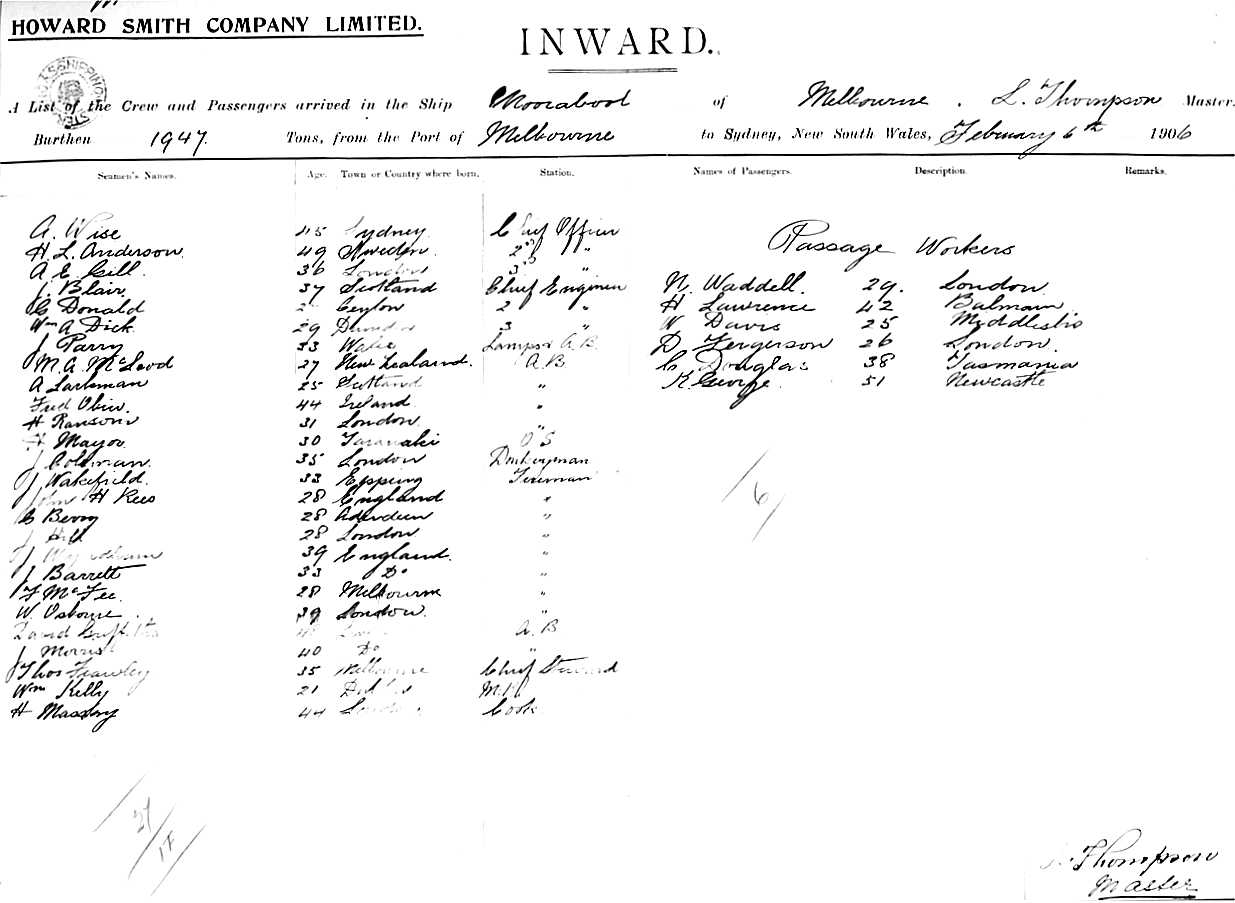 HOWARD SMITH COMPANY LIMITED.
INWARD.
A List of the Crew and Passengers arrived in the Ship Moorabool of Melbourne. L. Thompson Master.
Burthen 1947. Tons, from the Port of Melbourne to Sydney, New South Wales, February 6th 1906
Seamen's Names. Age. Town or Country where born. Station. Names of Passengers. Description. Remarks.
A. Wise 45 Sydney Chief Officer
H L Anderson 49 Sweden 2nd "
A E Gill 36 London 3rd
J Blair 37 Scotland Chief Engineer
C Donald Ceylon 2 "
Wm A Dick 29 3 "
J Parry 33 Wales A.B.
M. A. McLeod 27 New Zealand. A.B
A 25 Scotland "
Fred 44 Ireland "
H Ransom 31 London "
Mayor 30 Taranaki O S
J Coleman 35 London Donkeyman
J Wakefield 33 Epping Fireman
John H Rees 28 England "
C Berry 28 Aberdeen "
J Hill 28 London "
J 39 England. "
J Barrett 33 Do "
F McFee 28 Melbourne "
W. Osborne 39 London. "
David A. B
J Morris 40 Do "
Thos Frawley 35 Melbourne Chief Steward
Wm Kelly 21
H 44 London Cook
Passage Workers
N. Waddell. 29. London
H Lawrence 42 Balmain
W Davis 25
D. Fergerson 26 London.
C Douglas 38 Tasmania
K George 51 Newcastle
6
L. Thompson
Master